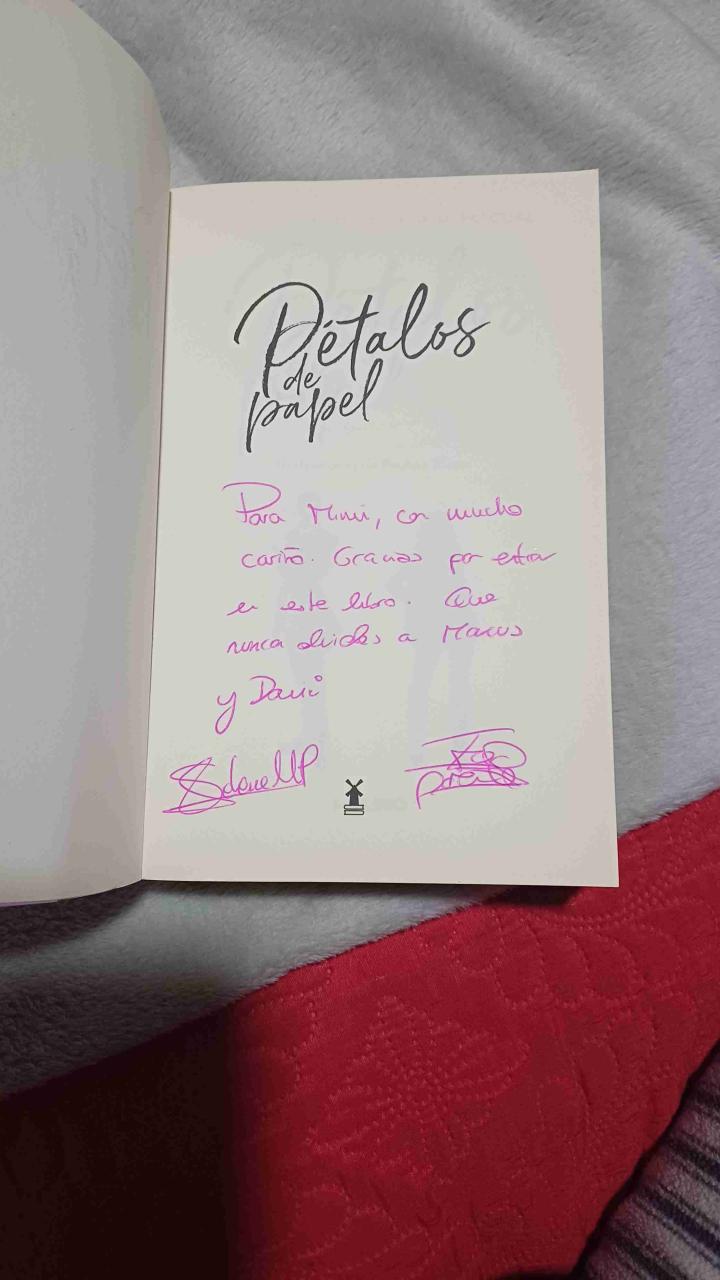 Pétalos
de
papel
Para Mimi, con mucho
cariño. Gracias por estar
en este libro. Que
nunca olvides a Marcus
y Dani